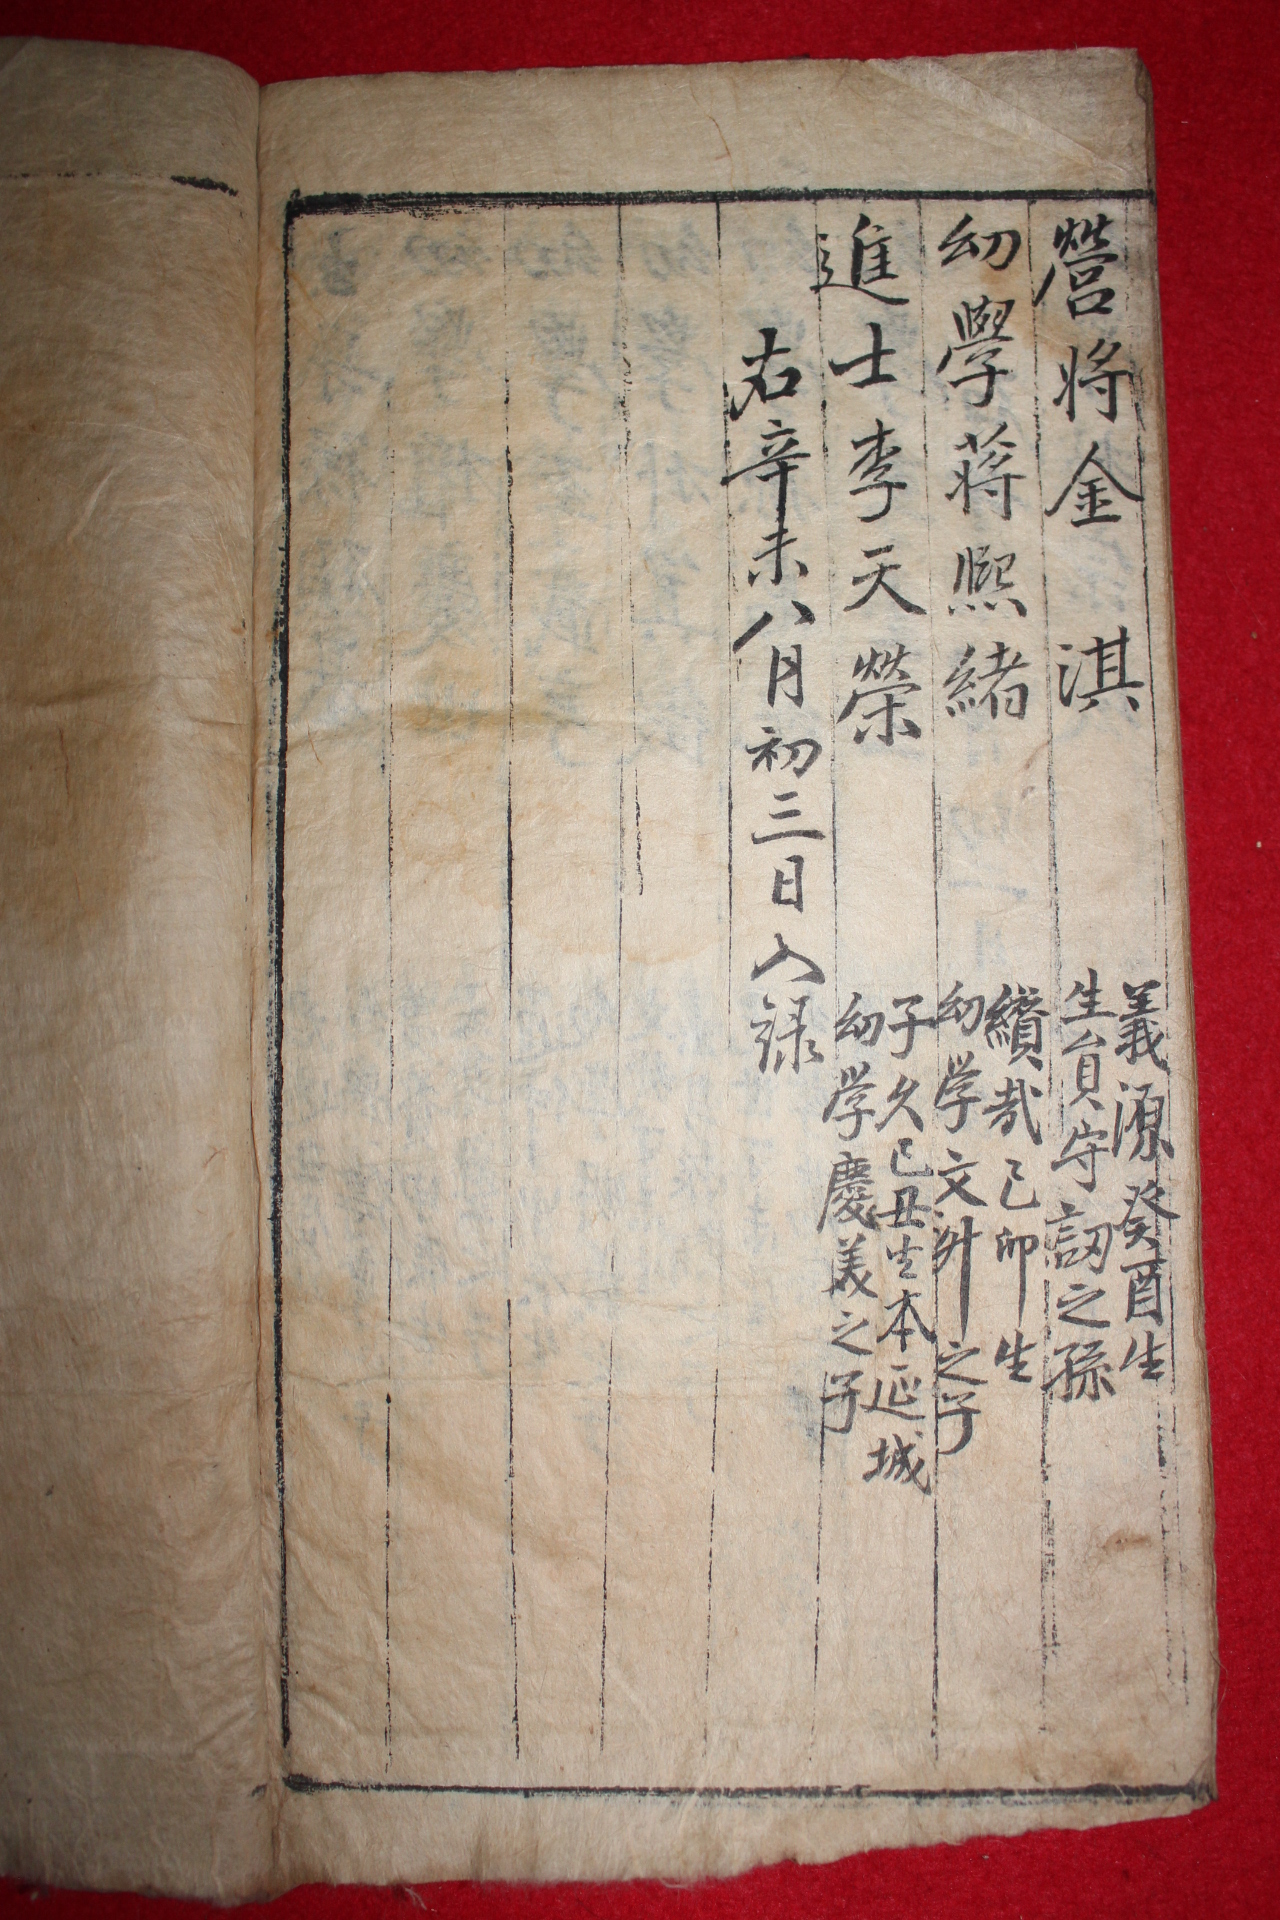 營將金淇
義源癸酉生
生員守訒之孫
幼學蔣熙緖
纘哉己卯生
幼学文升之子
進士李天榮
子久己丑生本延城
幼学慶義之子
右辛未八月初三日入録